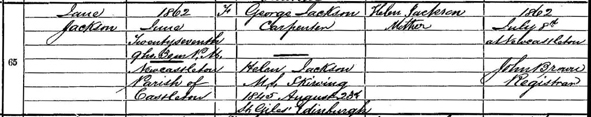 65
Jane
Jackson
1862
June
Twentyseventh
9hrs. 30m P.M.
Newcastleton
Parish of
Castleton
F
George Jackson
Carpenter
Helen Jackson
M.S. Skirving
1845 August 28th
St Giles' Edinburgh
Helen Jackson
Mother
1862
July 8th
at Newcastleton
John Brown
Registrar